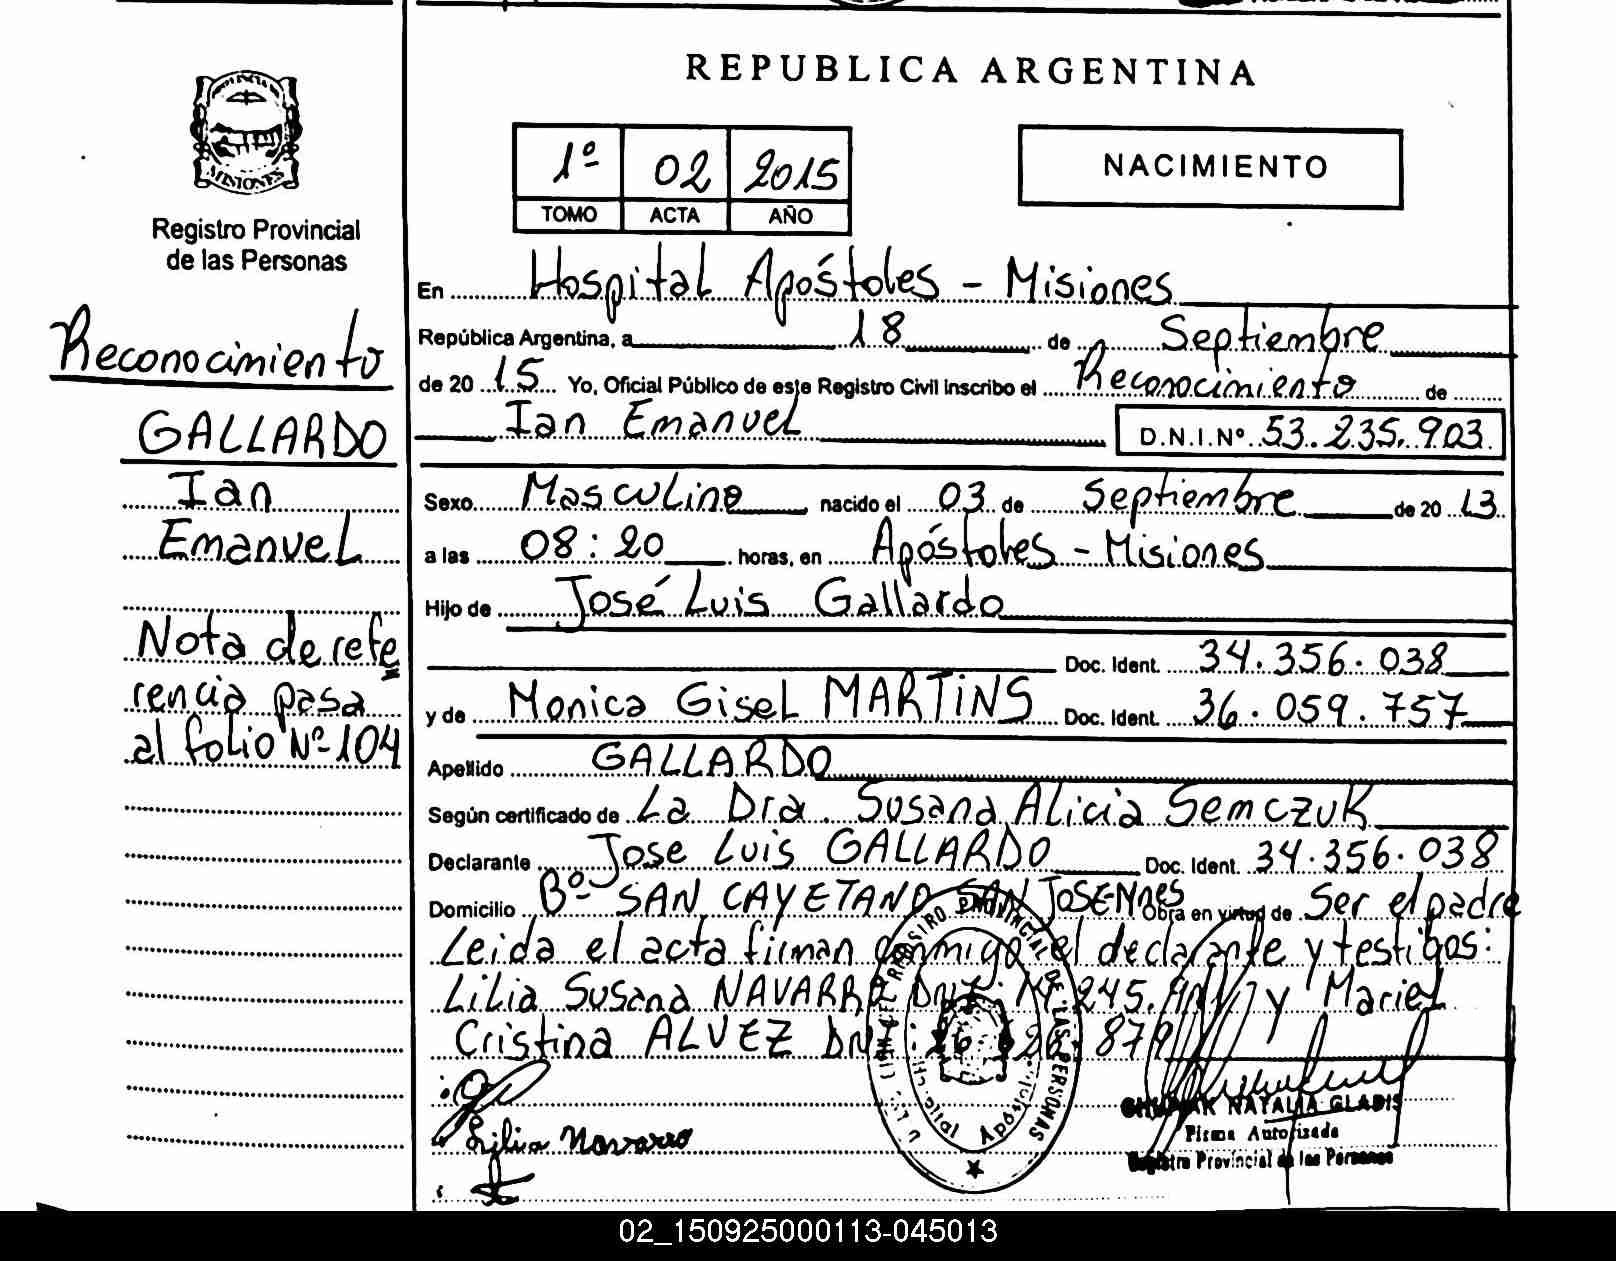 REPUBLICA ARGENTINA
MISIONES
Registro Provincial
de las Personas
1º 02 2015
TOMO ACTA AÑO
NACIMIENTO
Reconocimiento
GALLARDO
Ian
Emanuel
Nota de refe
rencia pasa
al folio Nº 104
En Hospital Apóstoles - Misiones
República Argentina, a 18 de Septiembre
de 20 15 Yo, Oficial Público de este Registro Civil inscribo el Reconocimiento de
Ian Emanuel D.N.I.Nº 53.235.903
Sexo Masculino nacido el 03 de Septiembre de 20 13
a las 08:20 horas, en Apóstoles - Misiones
Hijo de José Luis Gallardo
Doc. Ident. 34.356.038
y de Monica Gisel MARTINS Doc. Ident. 36.059.757
Apellido GALLARDO
Según certificado de La Dra. Susana Alicia Semczuk
Declarante Jose Luis GALLARDO Doc. Ident. 34.356.038
Domicilio Bº SAN CAYETANO SAN JOSE Mnes Obra en virtud de Ser el padre
Leida el acta firman conmigo el declarante y testigos:
Lilia Susana NAVARRO DNI: y Mariel
Cristina ALVEZ DNI: 879
Lilia Navarro
REGISTRO PROVINCIAL DE LAS PERSONAS
NATALIA GLADIS
Firma Autorizada
Registro Provincial de las Personas
02_150925000113-045013